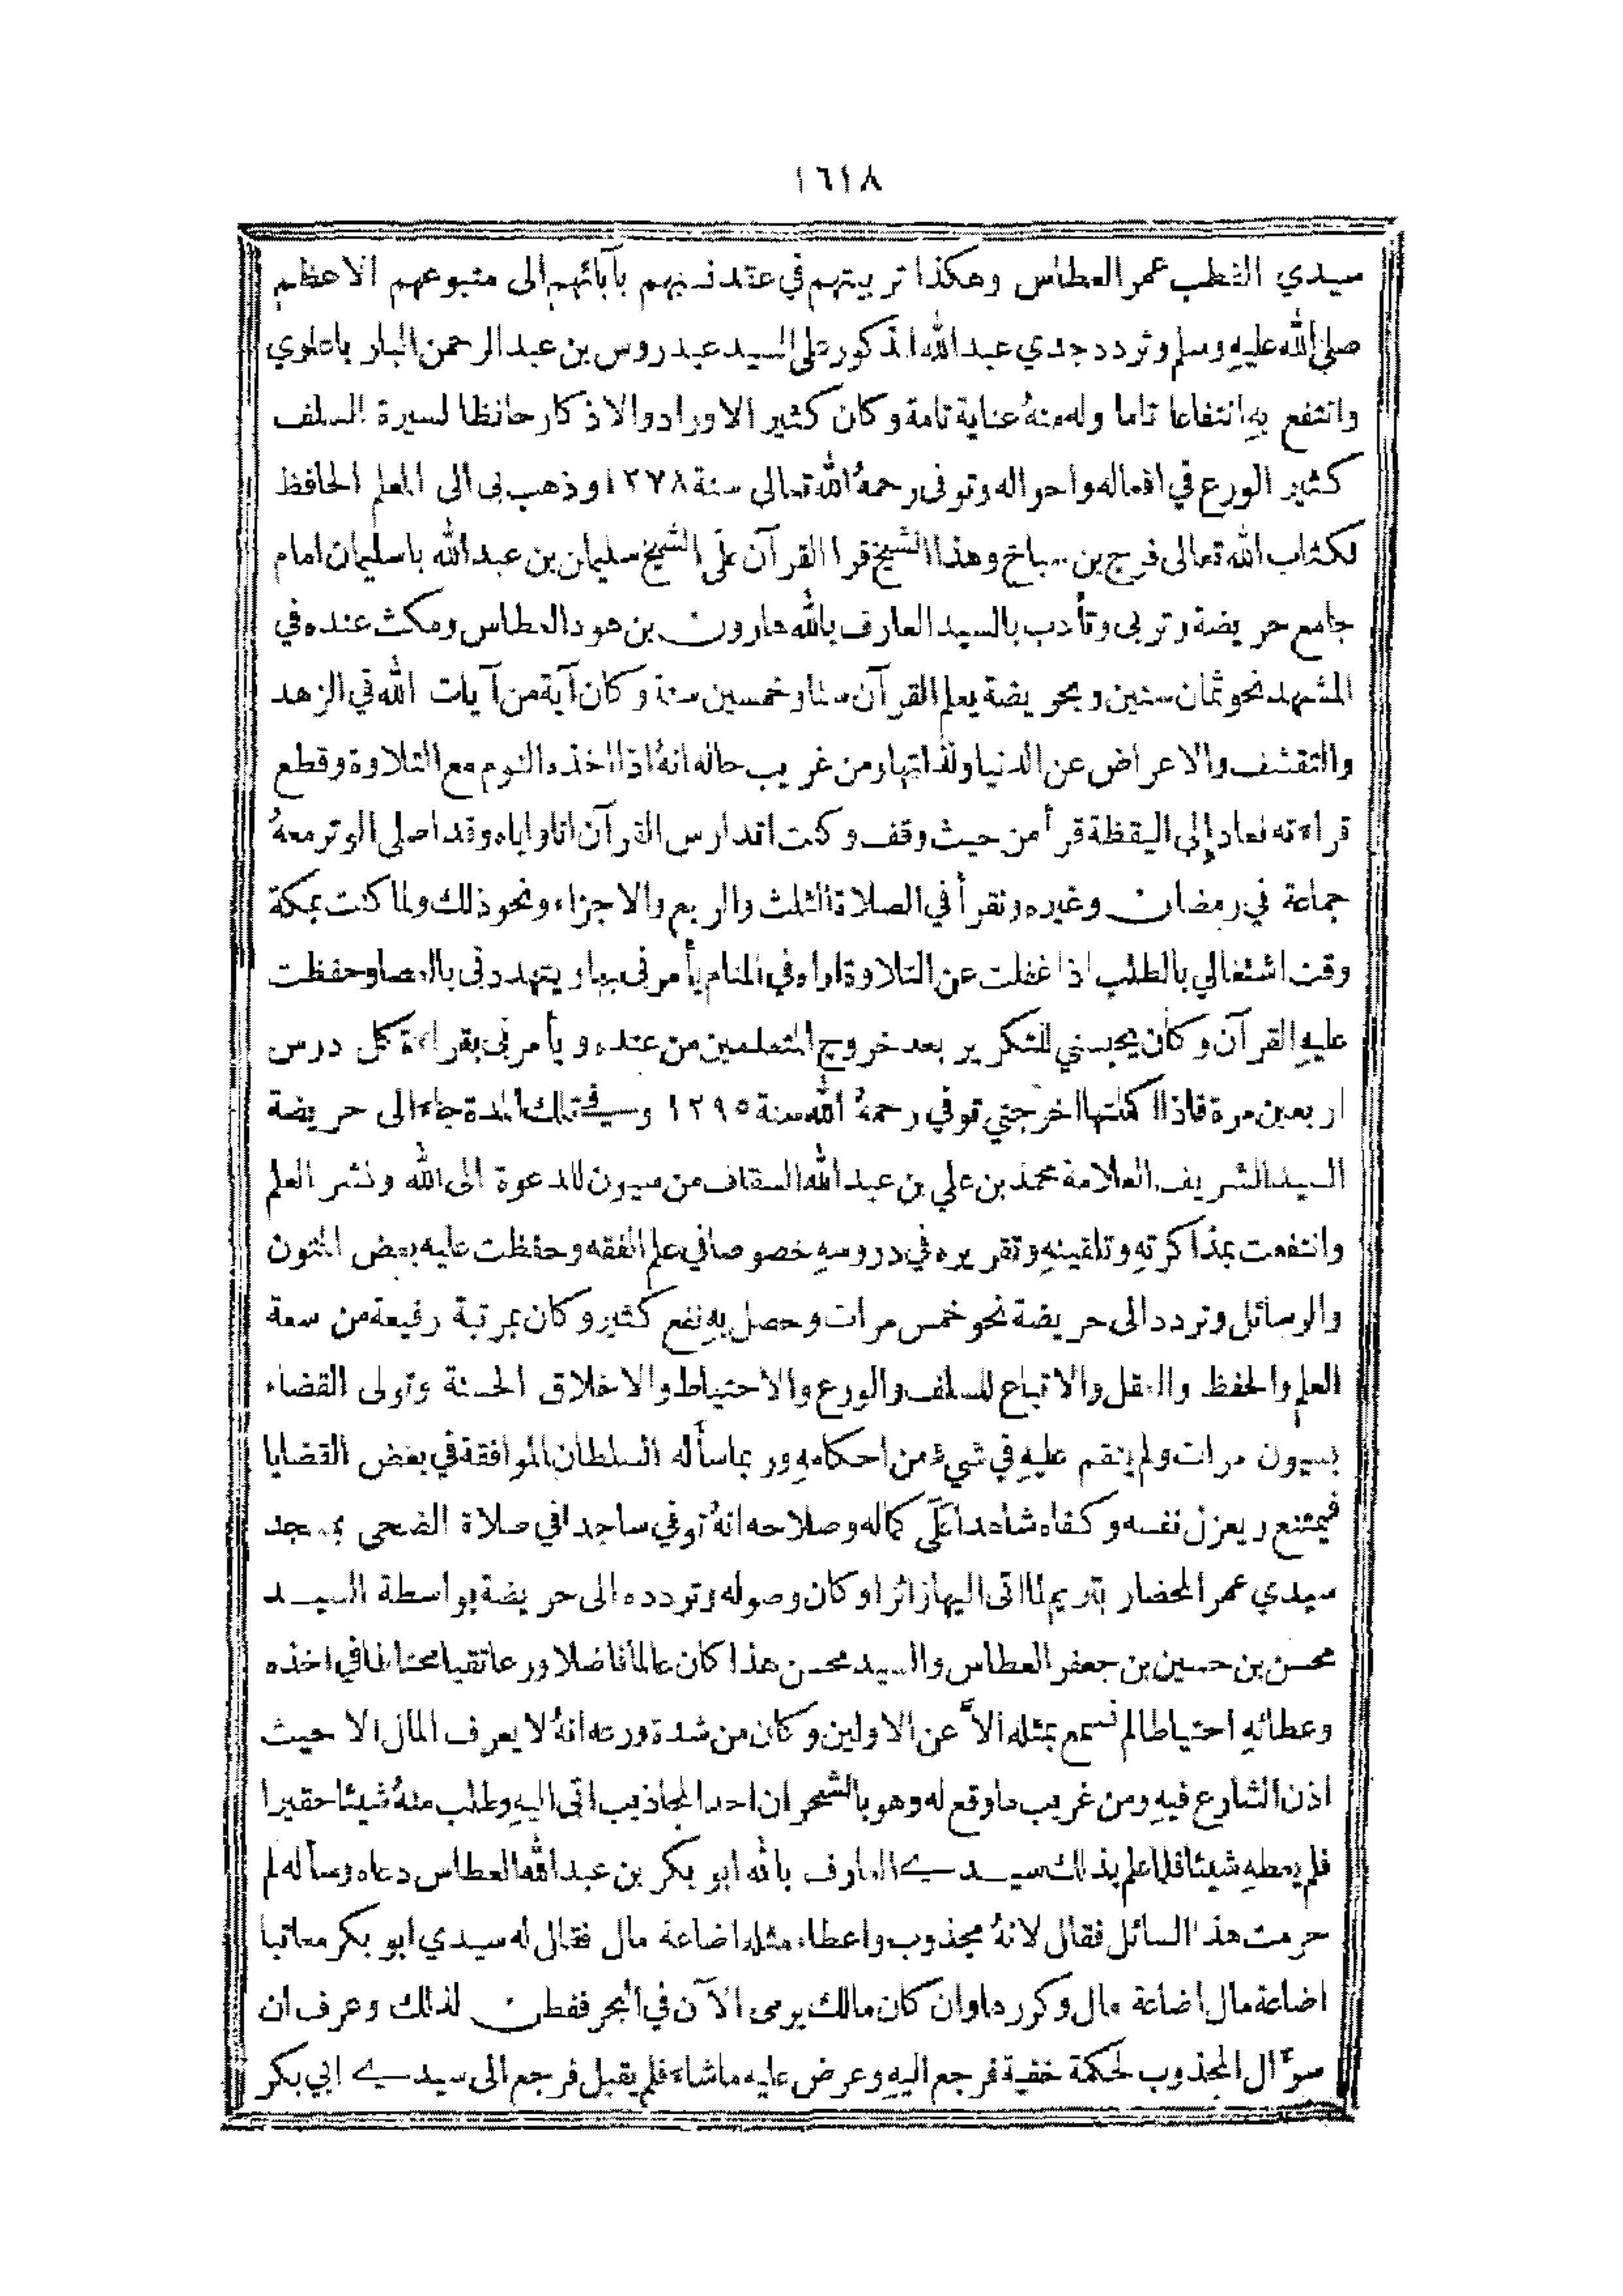 ١٦١٨
سيدي القطب عمر العطاس وهكذا تربيتهم في عقد نسبهم بآبائهم الى متبوعهم الاعظم
صلى الله عليهِ وسلم وتردد جدي عبد الله المذكور على السيد عيدروس بن عبد الرحمن البار باعلوي
وانتفع بهِ انتفاعا تاما وله منهُ عناية تامة وكان كثير الاوراد والاذكار حافظا لسيرة السلف
كثير الورع في افعاله واحواله وتوفى رحمهُ الله تعالى سنة ١٢٧٨ وذهب بى الى المعلم الحافظ
لكتاب الله تعالى فرج بن سباخ وهذا الشيخ قرا القرآن على الشيخ سليمان بن عبد الله باسليمان امام
جامع حريضة وتربى وتأدب بالسيد العارف بالله هارون بن هود العطاس ومكث عنده في
المشهد نحو ثمان سنين وبحريضة يعلم القرآن ستا وخمسين سنة وكان آية من آيات الله في الزهد
والتقشف والاعراض عن الدنيا ولذاتها ومن غريب حاله انهُ اذا اخذه النوم مع التلاوة وقطع
قراءته فعاد إلى اليقظة قرأ من حيث وقف وكنت اتدارس القرآن انا واياه وقد اصلى الوتر معهُ
جماعة في رمضان وغيره ونقرأ في الصلاة الثلث والربع والاجزاء ونحو ذلك ولما كنت بمكة
وقت اشتغالي بالطلب اذا غفلت عن التلاوة اراه في المنام يأمرنى بها ويتهددنى بالعصا وحفظت
عليهِ القرآن وكان يحبسني للتكرير بعد خروج المتعلمين من عنده ويأمرنى بقراءة كل درس
اربعين مرة فاذا اكملتها اخرجني توفي رحمهُ الله سنة ١٢٩٥ وفي تلك المدة جاء الى حريضة
السيد الشريف العلامة محمد بن علي بن عبد الله السقاف من سيون للدعوة الى الله ونشر العلم
وانتفعت بمذاكرتهِ وتلقينهِ وتقريره في دروسهِ خصوصا في علم الفقه وحفظت عليه بعض المتون
والرسائل وتردد الى حريضة نحو خمس مرات وحصل بهِ نفع كثير وكان بمرتبة رفيعة من سعة
العلم والحفظ والعقل والاتباع للسلف والورع والاحتياط والاخلاق الحسنة وتولى القضاء
بسيون مرات ولم ينقم عليهِ في شيءٍ من احكامهِ وربما سأله السلطان الموافقة في بعض القضايا
فيمتنع ويعزل نفسه وكفاه شاهدا على كماله وصلاحه انهُ توفي ساجدا في صلاة الضحى بمسجد
سيدي عمر المحضار بتريم لما اتى اليها زائرا وكان وصوله وتردده الى حريضة بواسطة السيد
محسن بن حسين بن جعفر العطاس والسيد محسن هذا كان عالما فاضلا ورعا تقيا محتاطا في اخذه
وعطائهِ احتياطا لم نسمع بمثله الاَّ عن الاولين وكان من شدة ورعه انهُ لا يعرف المال الا حيث
اذن الشارع فيهِ ومن غريب ما وقع له وهو بالشحر ان احد المجاذيب اتى اليهِ وطلب منهُ شيئا حقيرا
فلم يعطهِ شيئا فلما علم بذلك سيدي العارف بالله ابو بكر بن عبد الله العطاس دعاه وسأله لم
حرمت هذا السائل فقال لانهُ مجذوب واعطاء مثله اضاعة مال فقال له سيدي ابو بكر معاتبا
اضاعة مال اضاعة مال وكررها وان كان مالك يرمى الآن في البحر ففطن لذلك وعرف ان
سؤال المجذوب لحكمة خفية فرجع اليهِ وعرض عليه ما شاء فلم يقبل فرجع الى سيدي ابي بكر